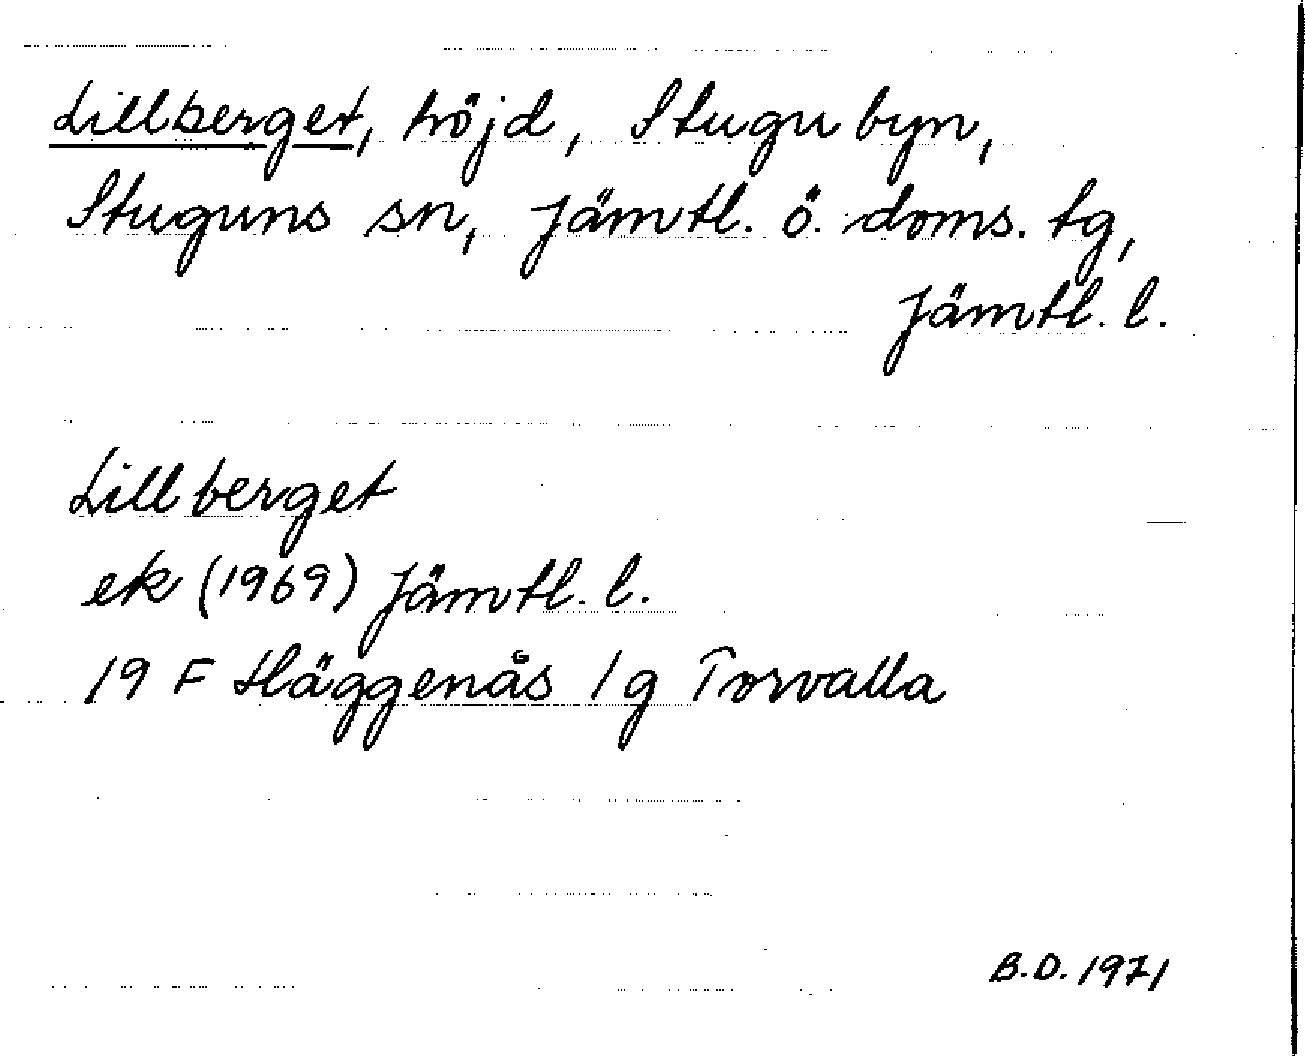 Lillberget, höjd, Stugubyn,
Stuguns sn, Jämtl. ö. doms. tg,
Jämtl. l.
Lillberget
ek (1969) Jämtl. l.
19 F Häggenås 1 g Torvalla
B.D. 1971